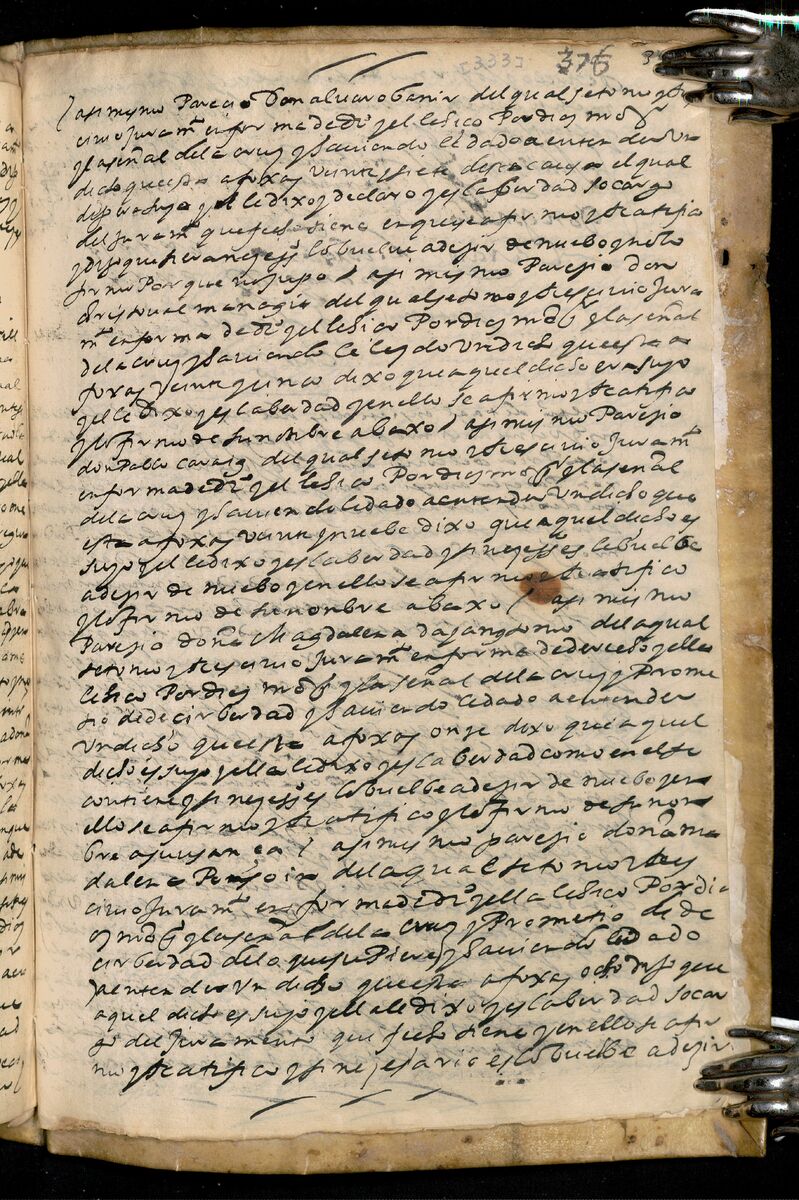 [333] 376
asi mismo Parecio Don alvaro banir del qual se tomo y Re
civio Juramto en forma de dro y el lo hiço Por dios nro sr
y la señal de la cruz y haviendole dado a entender un
dicho que esta a foxas veinte y siete desta causa el qual
dijo era suyo y el le dixo y declaro y es la berdad so cargo
del Juramto que fecho tiene en que se afirmo y Ratifico
y dijo que si era neçesso lo buelve a deçir de nuebo y no lo
firmo Por que no supo / asi mismo Paresio don
cristoual manogia del qual se tomo y Rescivio Jura
mto en forma de dro y el lo hico Por dios nro sr y la señal
de la cruz y haviendole leydo un dicho que esta a
foxas veinte y cinco dixo que aquel dicho era suyo
y el le dixo y es la berdad y en ello se afirmo y Ratifico
y lo firmo de su nonbre abaxo / asi mismo Paresio
don Pablo caraig del qual se tomo y Rescivio Juramto
en forma de dro y el lo hico Por dios nro sr y la señal
de la cruz y haviendole dado a entender un dicho que
esta a foxas veinte y nuebe dixo que aquel dicho es
suyo y el le dixo y es la berdad y si neçesso es lo buelbe
a deçir de nuebo y en ello se afirmo y Ratifico
y lo firmo de su nonbre abaxo / asi mismo
Paresio doña Magdalena dajangsomo del aqual
se tomo y Rescivio Juramto en forma de derecho y ella
lo hico Por dios nro sr y la señal de la cruz y Prome
tio de decir berdad y haviendole dado a entender
un dicho que esta a foxas onze dixo que aquel
dicho es suyo y ella le dixo y es la berdad como en el se
contiene y si neçesso es lo buelbe a deçir de nuebo y en
ello se afirmo y Ratifico y lo firmo de su non
bre a su usança / asi mismo paresio doña ma
dalena Ponsoin del aqual se tomo y Res
civio Juramto en forma de dro y ella lo hico Por di
os nro sr y la señal de la cruz y Prometio de de
cir berdad de lo que supiere y haviendole dado
a entender un dicho que esta a foxas ocho dijo que
aquel dicho es suyo y ella le dixo y es la berdad so car
go del Juramento que fecho tiene y en ello se afir
mo y Ratifico y si nesesario es lo buelbe a deçir